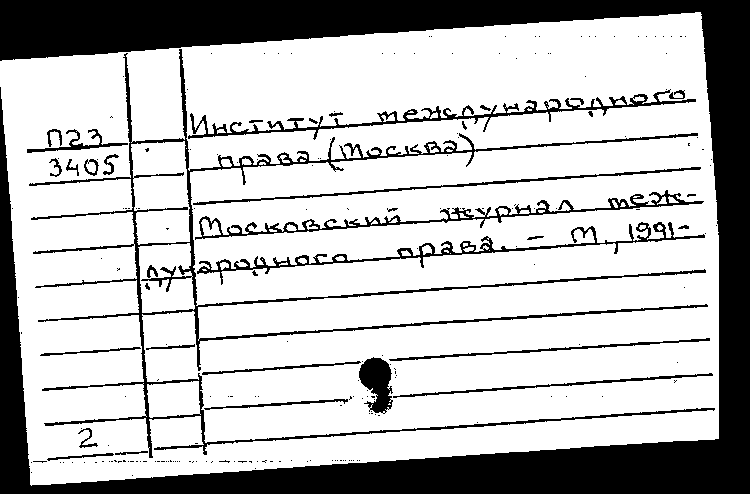 П23
3405
Институт международного
права (Москва)
Московский журнал меж-
дународного права. - М., 1991-
2